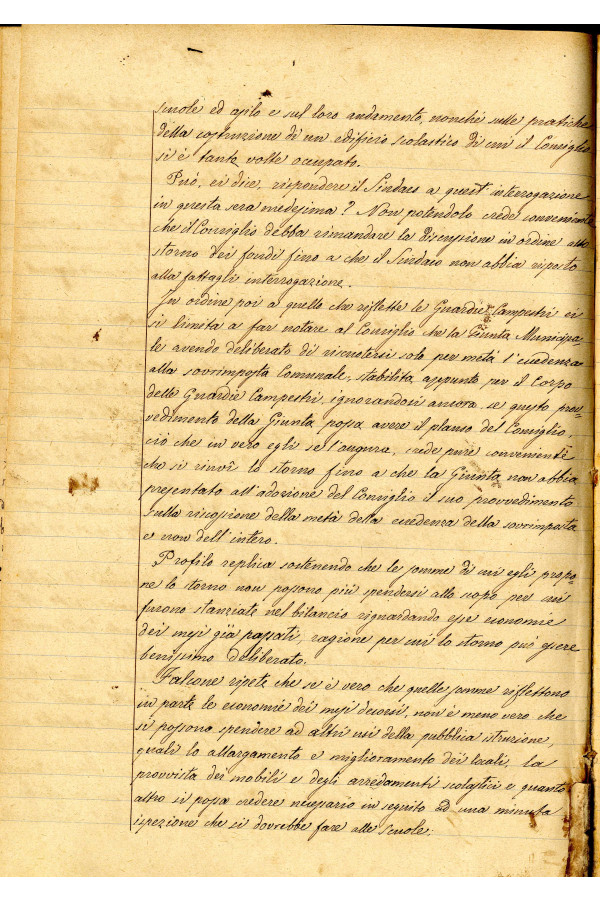 scuole ed asilo e sul loro andamento, nonché sulle pratiche
della costruzione di un edificio scolastico di cui il Consiglio
si è tante volte occupato.
Può, ei dice, rispondere il Sindaco a quest'interrogazione
in questa sera medesima? Non potendolo crede conveniente
che il Consiglio debba rimandare la discussione in ordine allo
storno dei fondi fino a che il Sindaco non abbia risposto
alla fattagli interrogazione.
In ordine poi a quello che riflette le Guardie Campestri ei
si limita a far notare al Consiglio che la Giunta Municipa
le avendo deliberato di riscuotersi solo per metà l'eccedenza
alla sovrimposta Comunale, stabilita appunto per il Corpo
delle Guardie Campestri, ignorandosi ancora, se questo prov-
vedimento della Giunta possa avere il plauso del Consiglio,
ciò che in vero egli se l'augura, crede pure conveniente
che si rinvii lo storno fino a che la Giunta non abbia
presentato all'adozione del Consiglio il suo provvedimento
sulla riscossione della metà della eccedenza della sovrimposta
e non dell'intero.
Profilo replica sostenendo che le somme di cui egli propo
ne lo storno non possono più spendersi allo scopo per cui
furono stanziate nel bilancio riguardando esse economie
dei mesi già passati, ragione per cui lo storno può essere
benissimo deliberato.
Falcone ripete che se è vero che quelle somme riflettono
in parte le economie dei mesi decorsi, non è meno vero che
si possono spendere ad altri usi della pubblica istruzione,
quali lo allargamento e miglioramento dei locali, la
provvista dei mobili e degli arredamenti scolastici e quanto
altro si possa credere necessario in seguito ad una minuta
ispezione che si dovrebbe fare alle scuole.